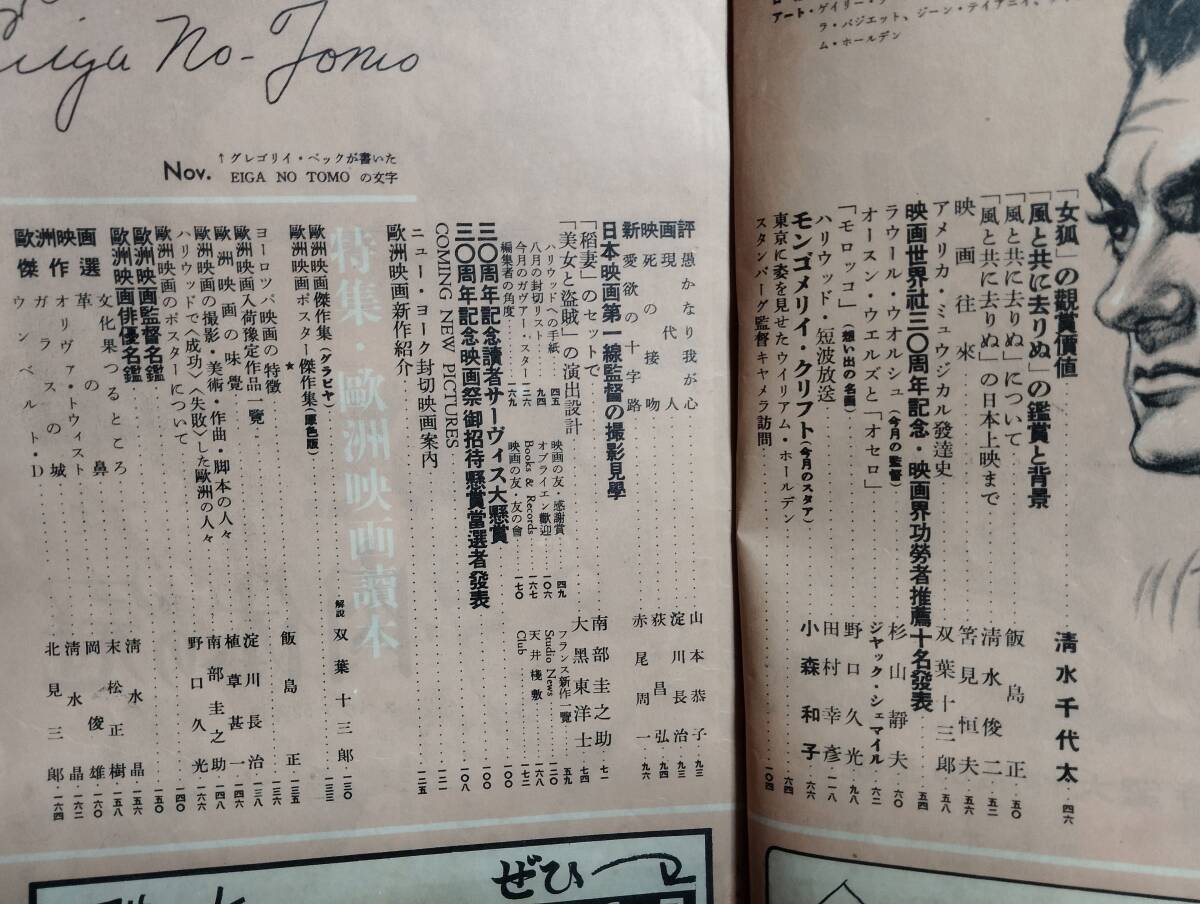 アート・ゲイリー・
ラ・パジェット、ジーン・テイアニイ、
ム・ホールデン
「女狐」の觀賞價値 清水千代太・四六
「風と共に去りぬ」の鑑賞と背景
「風と共に去りぬ」について 飯島正・五〇
「風と共に去りぬ」の日本上映まで 清水俊二・五二
映画往來 筈見恒夫
アメリカ・ミュウジカル發達史 双葉十三郎・五四
映画世界社三〇周年記念・映画界功勞者推薦十名發表
ラウール・ウオルシュ(今月の監督) 杉山靜夫・六〇
オースン・ウエルズと「オセロ」 ジャック・シェマイル・六二
「モロッコ」(想い出の名画) 野口久光・九八
ハリウッド・短波放送 田村幸彦・一一八
モンゴメリイ・クリフト(今月のスタア) 小森和子・六六
東京に姿を見せたウイリアム・ホールデン・六四
スタンバーグ監督キヤメラ訪問・一〇四
Eiga No-Tomo
↑グレゴリイ・ペックが書いた
Nov. EIGA NO TOMO の文字
新映画評
愚かなり我が心 山本恭子・九三
現代人 淀川長治・九三
死の接吻 荻昌弘・九四
愛欲の十字路 赤尾周一・九六
日本映画第一線監督の撮影見學
「稻妻」のセットで 南部圭之助・七一
「美女と盗賊」の演出設計 大黒東洋士・七四
ハリウッドへの手紙・四五
八月の封切リスト・九四
今月のガヴアー・スター・二六
編集者の角度・一六九
映画の友・感謝賞・四九
オブライエン歡迎・一〇六
Books & Records・一六七
映画の友・友の會・一七〇
フランス新作一覽・五九
Studio News・一二〇
天井棧敷・一六八
Club・一七二
三〇周年記念讀者サーヴィス大懸賞・一〇〇
三〇周年記念映画祭御招待懸賞當選者發表・一〇八
COMING NEW PICTURES・一二一
ニュー・ヨーク封切映画案内
歐洲映画新作紹介・一二五
特集・歐洲映画讀本
歐洲映画傑作集(グラビヤ) 解説 双葉十三郎・一三〇
歐洲映画ポスター傑作集(原色版)・一三三
★
ヨーロッパ映画の特徴 飯島正・一三五
歐洲映画入荷豫定作品一覽
歐洲映画の味覺 淀川長治・一三八
歐洲映画の撮影・美術・作曲・脚本の人々 植草甚一・一四四
ハリウッドで<成功><失敗>した歐洲の人々 南部圭之助・一四八
歐洲映画のポスターについて 野口久光・一六六
歐洲映画監督名鑑・一四〇
歐洲映画俳優名鑑・一五〇
歐洲映画傑作選
文化果つるところ 清水晶・一五六
革の鼻 末松正樹・一五八
オリヴァ・トウィスト 岡俊雄
ガラスの城 清水晶・一六二
ウンベルト・D 北見三郎・一六四
ぜひ一つ